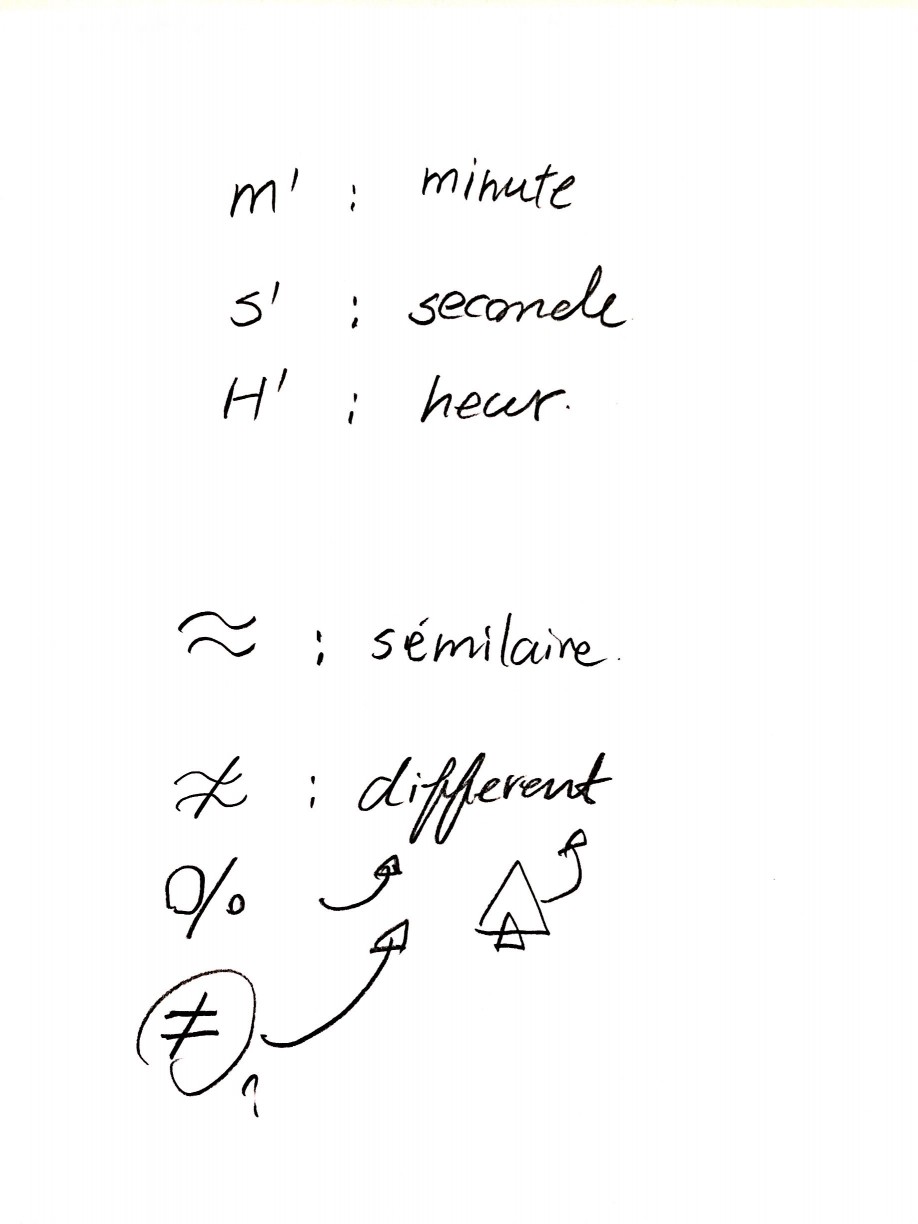 m' : minute
s' : seconde
H' : heur.
≈ : sémilaire.
≉ : different
%
≠
?